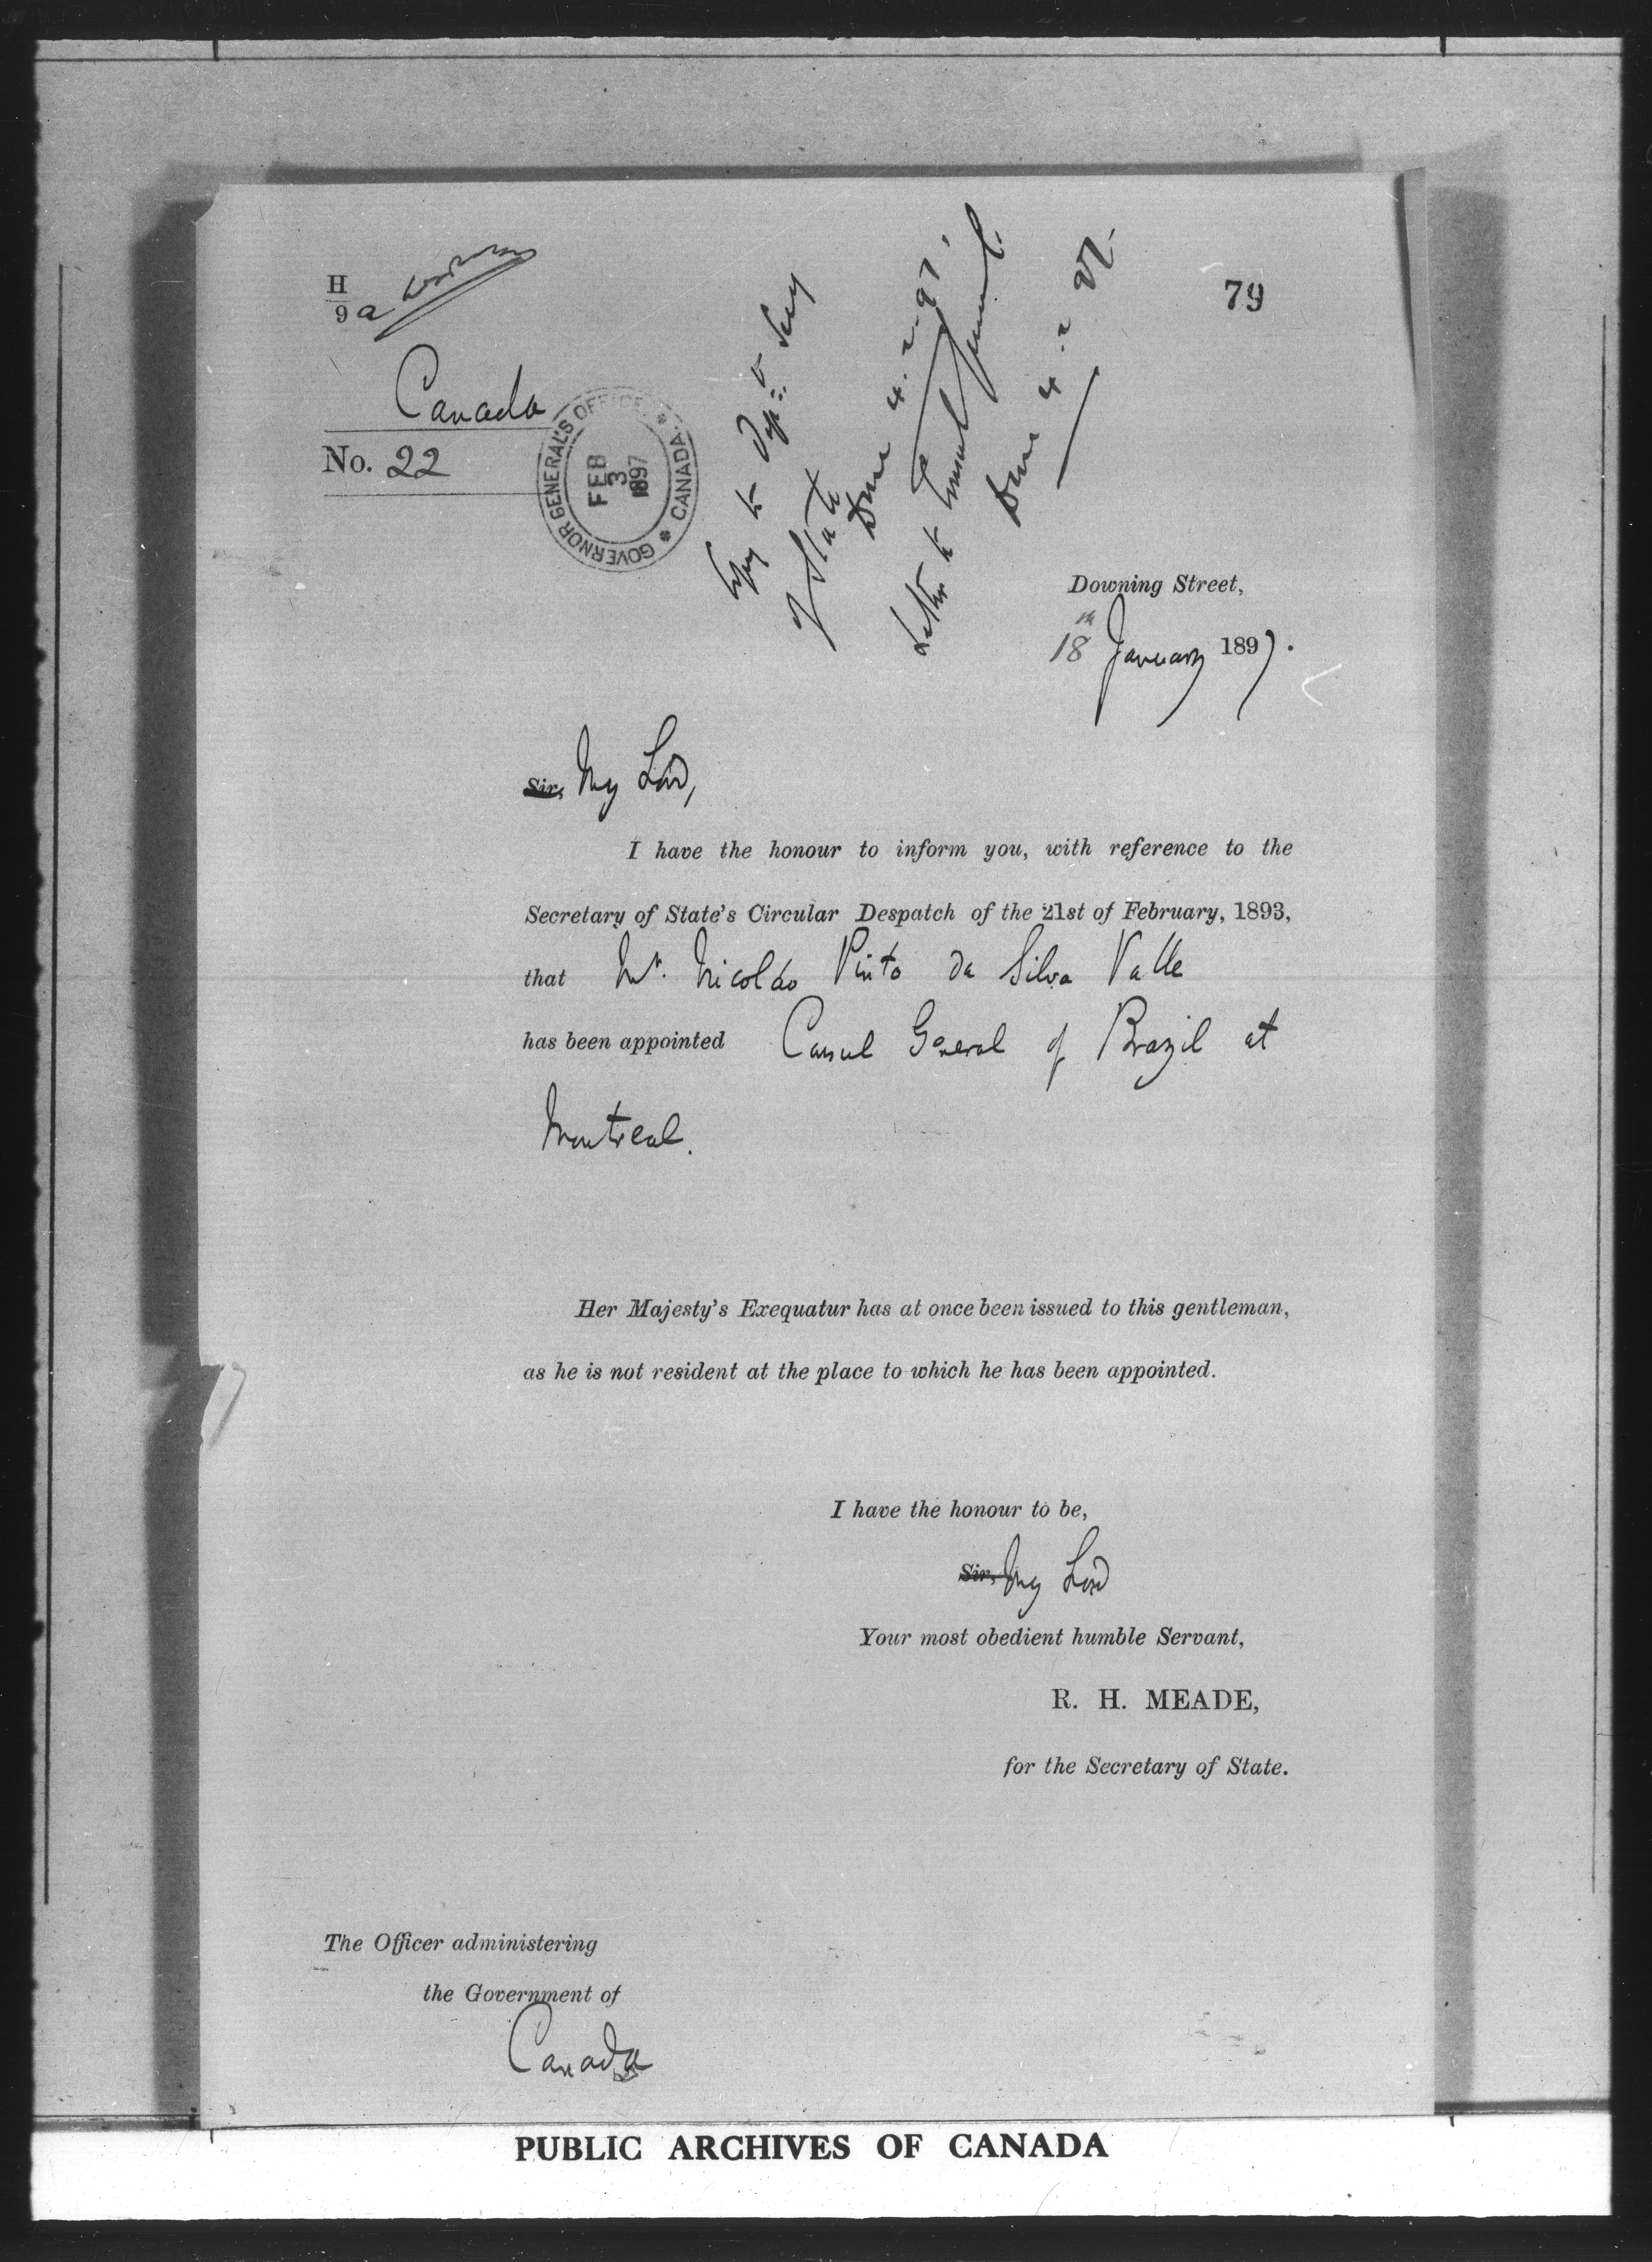 H
9 a
79
Canada
No. 22
GOVERNOR GENERAL'S OFFICE
FEB
3
1897
CANADA
Copy to Dept: Secy
of State
Done 4.2.97.
Letter to Consul General.
Done 4.2.97.
Downing Street,
18th January 1897.
Sir, My Lord,
I have the honour to inform you, with reference to the
Secretary of State's Circular Despatch of the 21st of February, 1893,
that Mr. Nicoláo Pinto da Silva Valle
has been appointed Consul General of Brazil at
Montreal.
Her Majesty's Exequatur has at once been issued to this gentleman,
as he is not resident at the place to which he has been appointed.
I have the honour to be,
Sir, My Lord
Your most obedient humble Servant,
R. H. MEADE,
for the Secretary of State.
The Officer administering
the Government of
Canada
PUBLIC ARCHIVES OF CANADA